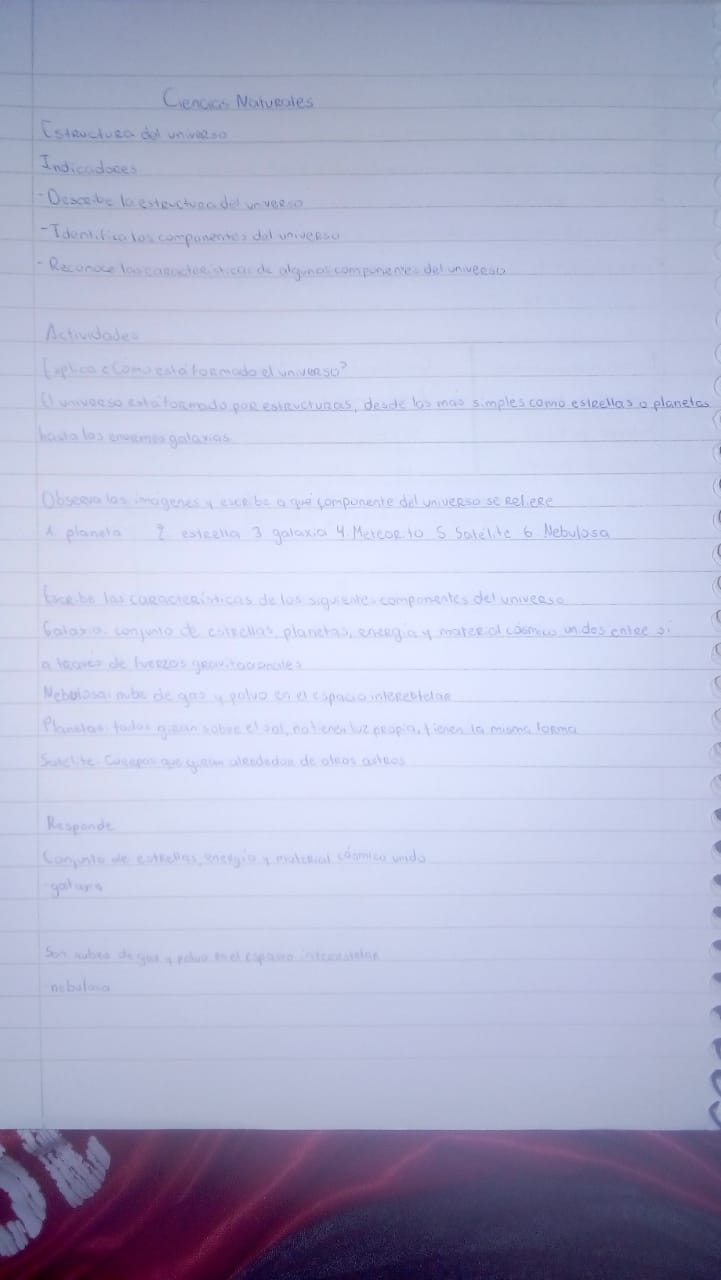 Ciencias Naturales
Estructura del universo
Indicadores
-Describe la estructura del universo
-Identifica los componentes del universo
-Reconoce las características de algunos componentes del universo
Actividades
Explica ¿Cómo está formado el universo?
El universo está formado por estructuras, desde las más simples como estrellas o planetas
hasta las enormes galaxias
Observa las imágenes y escribe a qué componente del universo se refiere
1 planeta 2 estrella 3 galaxia 4 Meteorito 5 Satélite 6 Nebulosa
Escribe las características de los siguientes componentes del universo
Galaxia: conjunto de estrellas, planetas, energía y material cósmico unidos entre si
a traves de fuerzas gravitacionales
Nebulosa: nube de gas y polvo en el espacio interestelar
Planetas: todos giran sobre el sol, no tienen luz propia, tienen la misma forma
Satelite: Cuerpos que giran alrededor de otros astros
Responde
Conjunto de estrellas, energía y material cósmico unido
-galaxia
Son nubes de gas y polvo en el espacio interestelar
-nebulosa